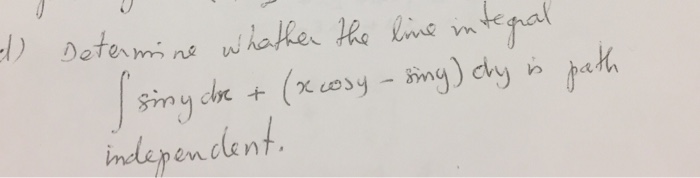 d) Determine whather the line integral
∫ siny dx + (x cosy - siny) dy is path
independent.